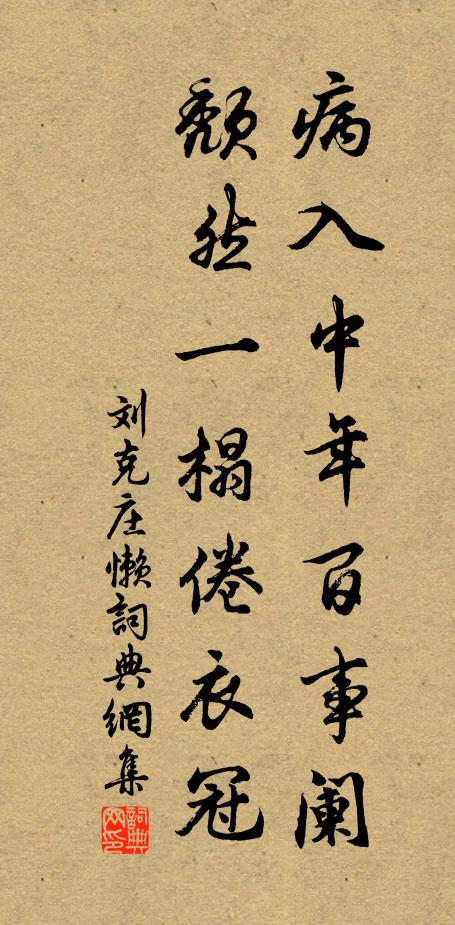 病入中年百事阑
颓然一榻倦衣冠
刘克庄懒詞典網集
詞典网印